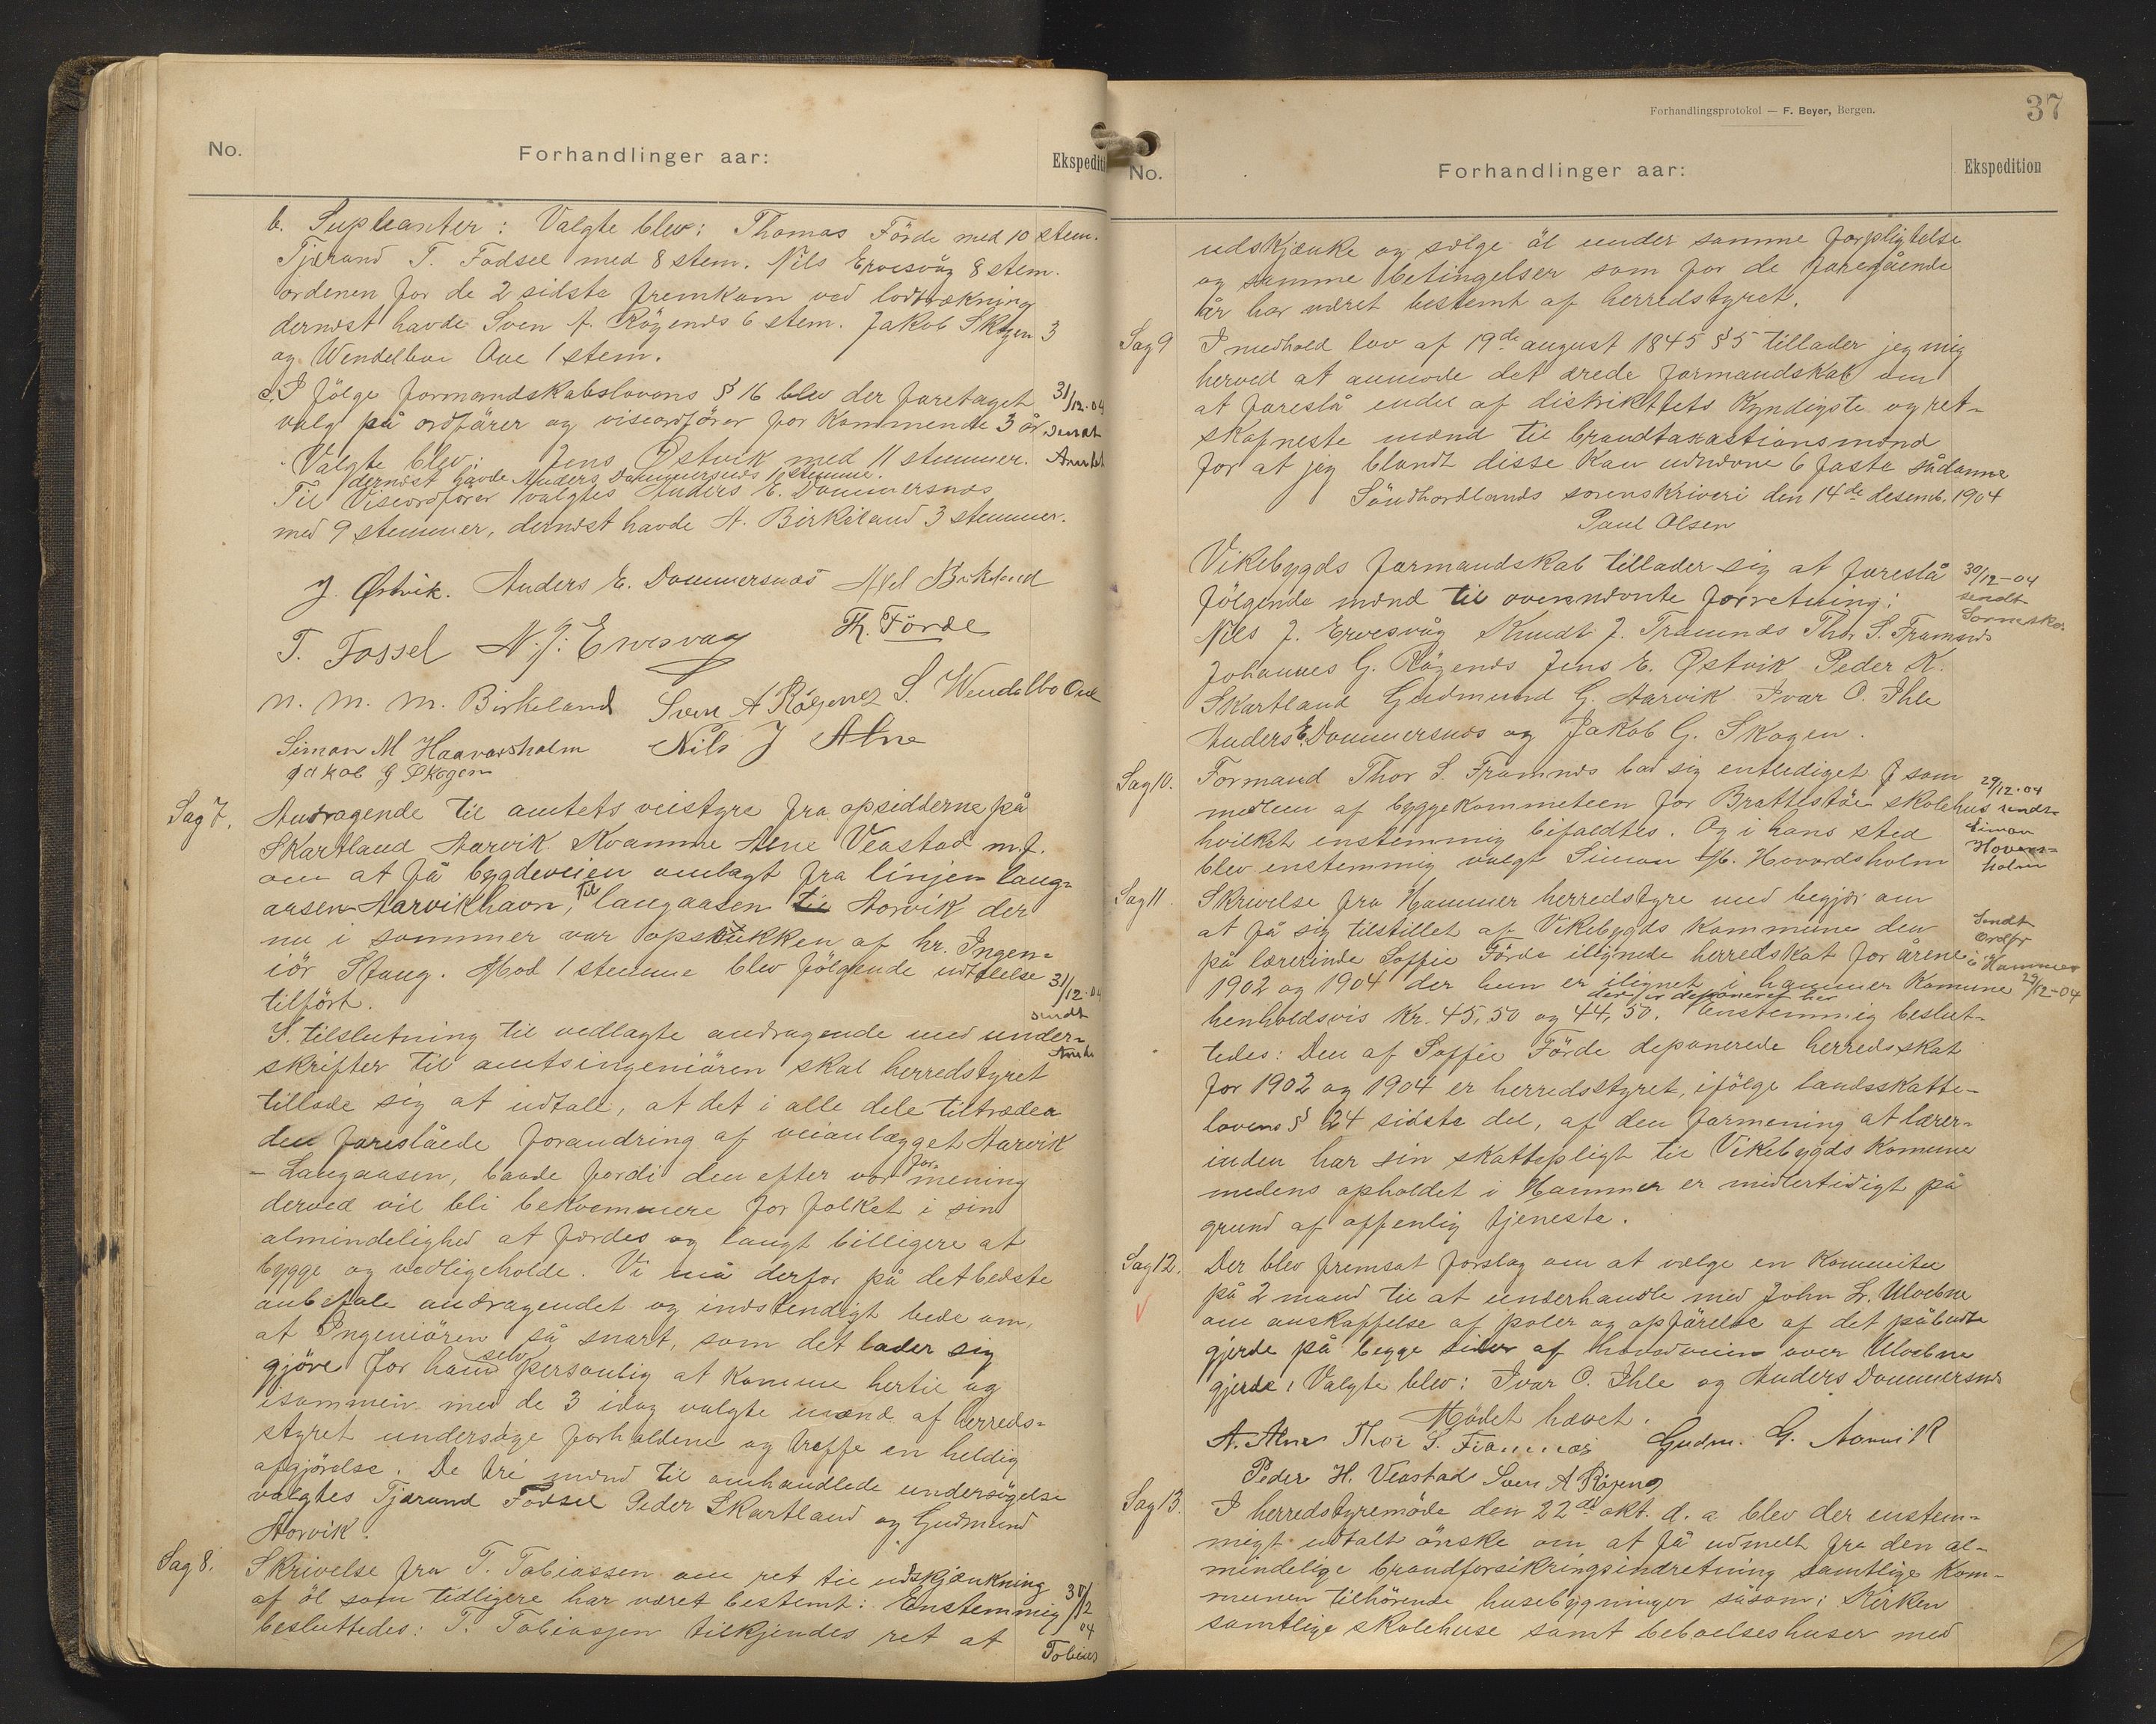 No.
Forhandlinger aar:
Ekspediti
b. Supleanter: Valgte blev: Thomas Förde med 10 stem.
Tjærand T. Fodsel med 8 stem. Nils Ervesvåg 8 stem.
ordenen for de 2 sidste fremkom ved lodtrækning
dernæst havde Sven A. Rögenæs 6 stem. Jakob Skogen 3
og Wendelboe Aae 1 stem.
c. I fölge formandskabslovens § 16 blev der foretaget
valg på ordförer og viseordförer for kommende 3 år
Valgte blev: Jens Østvik med 11 stemmer.
dernæst havde Anders Dommersnæs 1 stemme.
Til Viseordförer valgtes Anders E. Dommersnæs
med 9 stemmer, dernæst havde A. Birkeland 3 stemmer.
31/12.04
sendt
Amtet
J. Østvik. Anders E. Dommersnæs Birkeland
T. Fossel N. J. Ervesvag Th. Förde
N. M. M. Birkeland Sven A Rögenes S. Wendelbo Aae
Simon M Haavarsholm Nils J Alne
Jakob G Skogen
Sag 7.
Andragende til amtets veistyre fra opsidderne på
Skartland Aarvik Kvamme Alne Veastad m.f.
om at få bygdeveien omlagt fra linjen lang-
aasen-Aarvikhavn, til langaasen til Aarvik der
nu i sommer var opstukken af hr. Ingen-
iör Stang. Mod 1 stemme blev fölgende udtalelse
tilfört.
31/12.04
sendt
I tilslutning til vedlagte andragende med under-
skrifter til amtsingeniören skal herredstyret
tillade sig at udtale, at det i alle dele tiltræder
den foreslåede forandring af veianlægget Aarvik
- Langaasen, baade fordi den efter vor for mening
derved vil bli bekvemmere for folket i sin
almindelighed at færdes og langt billigere at
bygge og vedligeholde. Vi må derfor på det bedste
anbefale andragendet og indstendigt bede om,
at Ingeniören så snart, som det lader sig
gjöre for ham selv personlig at komme hertil og
isammen med de 3 idag valgte mænd af herreds-
styret undersöge forholdene og treffe en heldig
afgjörelse. De tre mænd til omhandlede undersögelse
valgtes Tjærand Fodsel Peder Skartland og Gudmund
Aarvik.
Sag 8.
Skrivelse fra T. Tobiassen om ret til udskjænkning
af öl som tidligere har været bestemt: Enstemmig
besluttedes: T. Tobiassen tilkjendes ret at
04
Forhandlingsprotokol — F. Beyer, Bergen.
37
No.
Forhandlinger aar:
Ekspedition
udskjænke og sælge öl under samme forpligtelse
og samme betingelser som for de foregående
år har været bestemt af herredstyret.
Sag 9
I medhold lov af 19de august 1845 § 5 tillader jeg mig
herved at anmode det ærede formandskab om
at foreslå endel af distriktets kyndigste og ret-
skafneste mænd til brandtaxastionsmænd
for at jeg blandt disse kan udnævne 6 faste sådanne
Söndhordlands sorenskriveri den 14de desemb. 1904
Paul Olsen
Vikebygds formandskab tillader sig at foreslå
fölgende mænd til ovennævnte forretning:
30/12-04
sendt
Nils J. Ervesvåg Knudt J. Framnæs Thor S. Framnæs
Johannes G. Rögenæs Jens E. Østvik Peder K.
Skartland Gudmund G. Aarvik Ivar O. Ihle
Anders E. Dommersnæs og Jakob G. Skogen.
Sag 10.
Formand Thor S. Framnæs bad sig entlediget som
medlem af byggekommeteen for Brattestöe skolehus
hvilket enstemmig bifaldtes. Og i hans sted
blev enstemmig valgt Simon M. Hovardsholm
29/12.04
sendt
Simon
Hovars-
holm
Sag 11
Skrivelse fra Hammer herredstyre med begjær om
at få sig tilstillet af Vikebygds kommune den
på lærerinde Soffie Förde ilignede herredskat for årene
1902 og 1904 der hun er ilignet i hammer Komune
henholdsvis Kr. 45,50 og 44,50. der er deponeret her Enstemmig beslut-
tedes: Den af Soffie Förde deponerede herredsskat
for 1902 og 1904 er herredsstyret, ifölge landsskatte-
lovens § 24 sidste del, af den formening at lærer-
inden har sin skattepligt til Vikebygds Komune
medens opholdet i Hammer er midlertidigt på
grund af offenlig tjeneste.
Sendt
Ordfr
i Hammer
29/12-04
Sag 12.
Der blev fremsat forslag om at vælge en Komeite
på 2 mænd til at underhandle med John L. Ulvebne
om anskaffelse af poler og opförelse af det påbudte
gjerde på begge sider af hovedveien over Ulvebne
gjerde: Valgte blev: Ivar O. Ihle og Anders Dommersnæs
Mödet hævet.
A. Alne Thor S. Framnæs Gudm. G. Aarvik
Peder H. Veastad Sven A Rögenes
Sag 13.
I herredstyremöde den 22de okt. d. a. blev der enstem-
migt udtalt önske om at få udmelt fra den al-
mindelige brandforsikringsindretning samtlige Kom-
munen tilhörende husebygninger såsom: Kirken
samtlige skolehuse samt beboelseshuser med